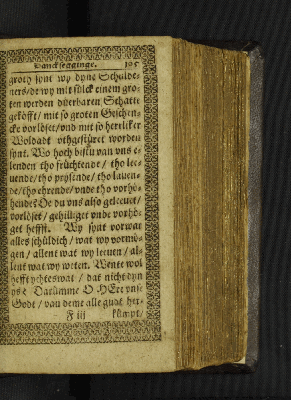 Dancksegginge.
groth synt wy dyne Schülde-
ners/ de wy mit sülck einem gro-
ten werden düerbaren Schatte
geköfft/ mit so groten Geschen-
cke vorlöset/ vnd mit so herrliker
Woldadt vthgeföret worden
synt. Wo hoch bistu van vns e-
lenden tho früchtende/ tho lee-
uende/ tho prysende/ tho lauen-
de/ tho ehrende/ vnde tho vorhö-
hende? De du vns also geleeuet/
vorlöset/ gehilliget vnde vorhö-
get heffst. Wy synt vorwar
alles schüldich/ wat wy vormü-
gen/ allent wat wy leeuen/ al-
lent wat wy weten. Wente wol
hefft ychteswat/ dat nicht dyn
ys? Darümme O HErr vnse
Godt/ van deme alle gudt her-
F iij
kümpt/